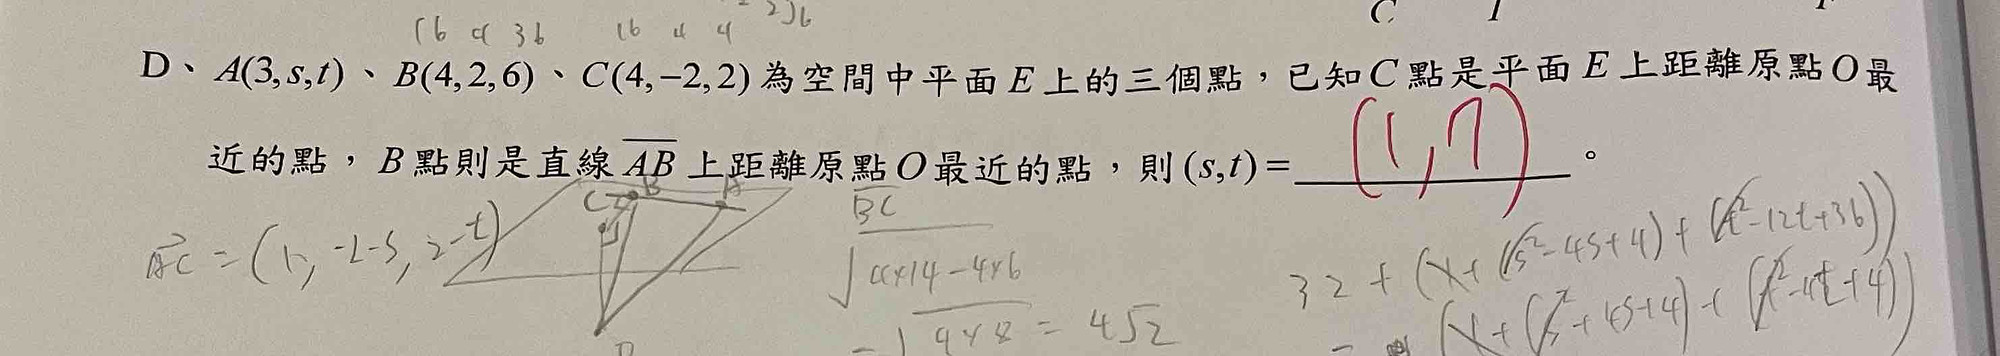 16 4 36 16 4 4
D、A(3,s,t)、B(4,2,6)、C(4,−2,2)為空間中平面E上的三個點，已知C點是平面E上距離原點O最
近的點，B點則是直線AB上距離原點O最近的點，則(s,t)=(1,7)。
C B A
AC = (1, -2-s, 2-t)
BC
√4×14-4×6
32+(1+(s²-4s+4)+(t²-12t+36))
(1+(s²+4s+4)+(t²-4t+4))
= √4×8 = 4√2